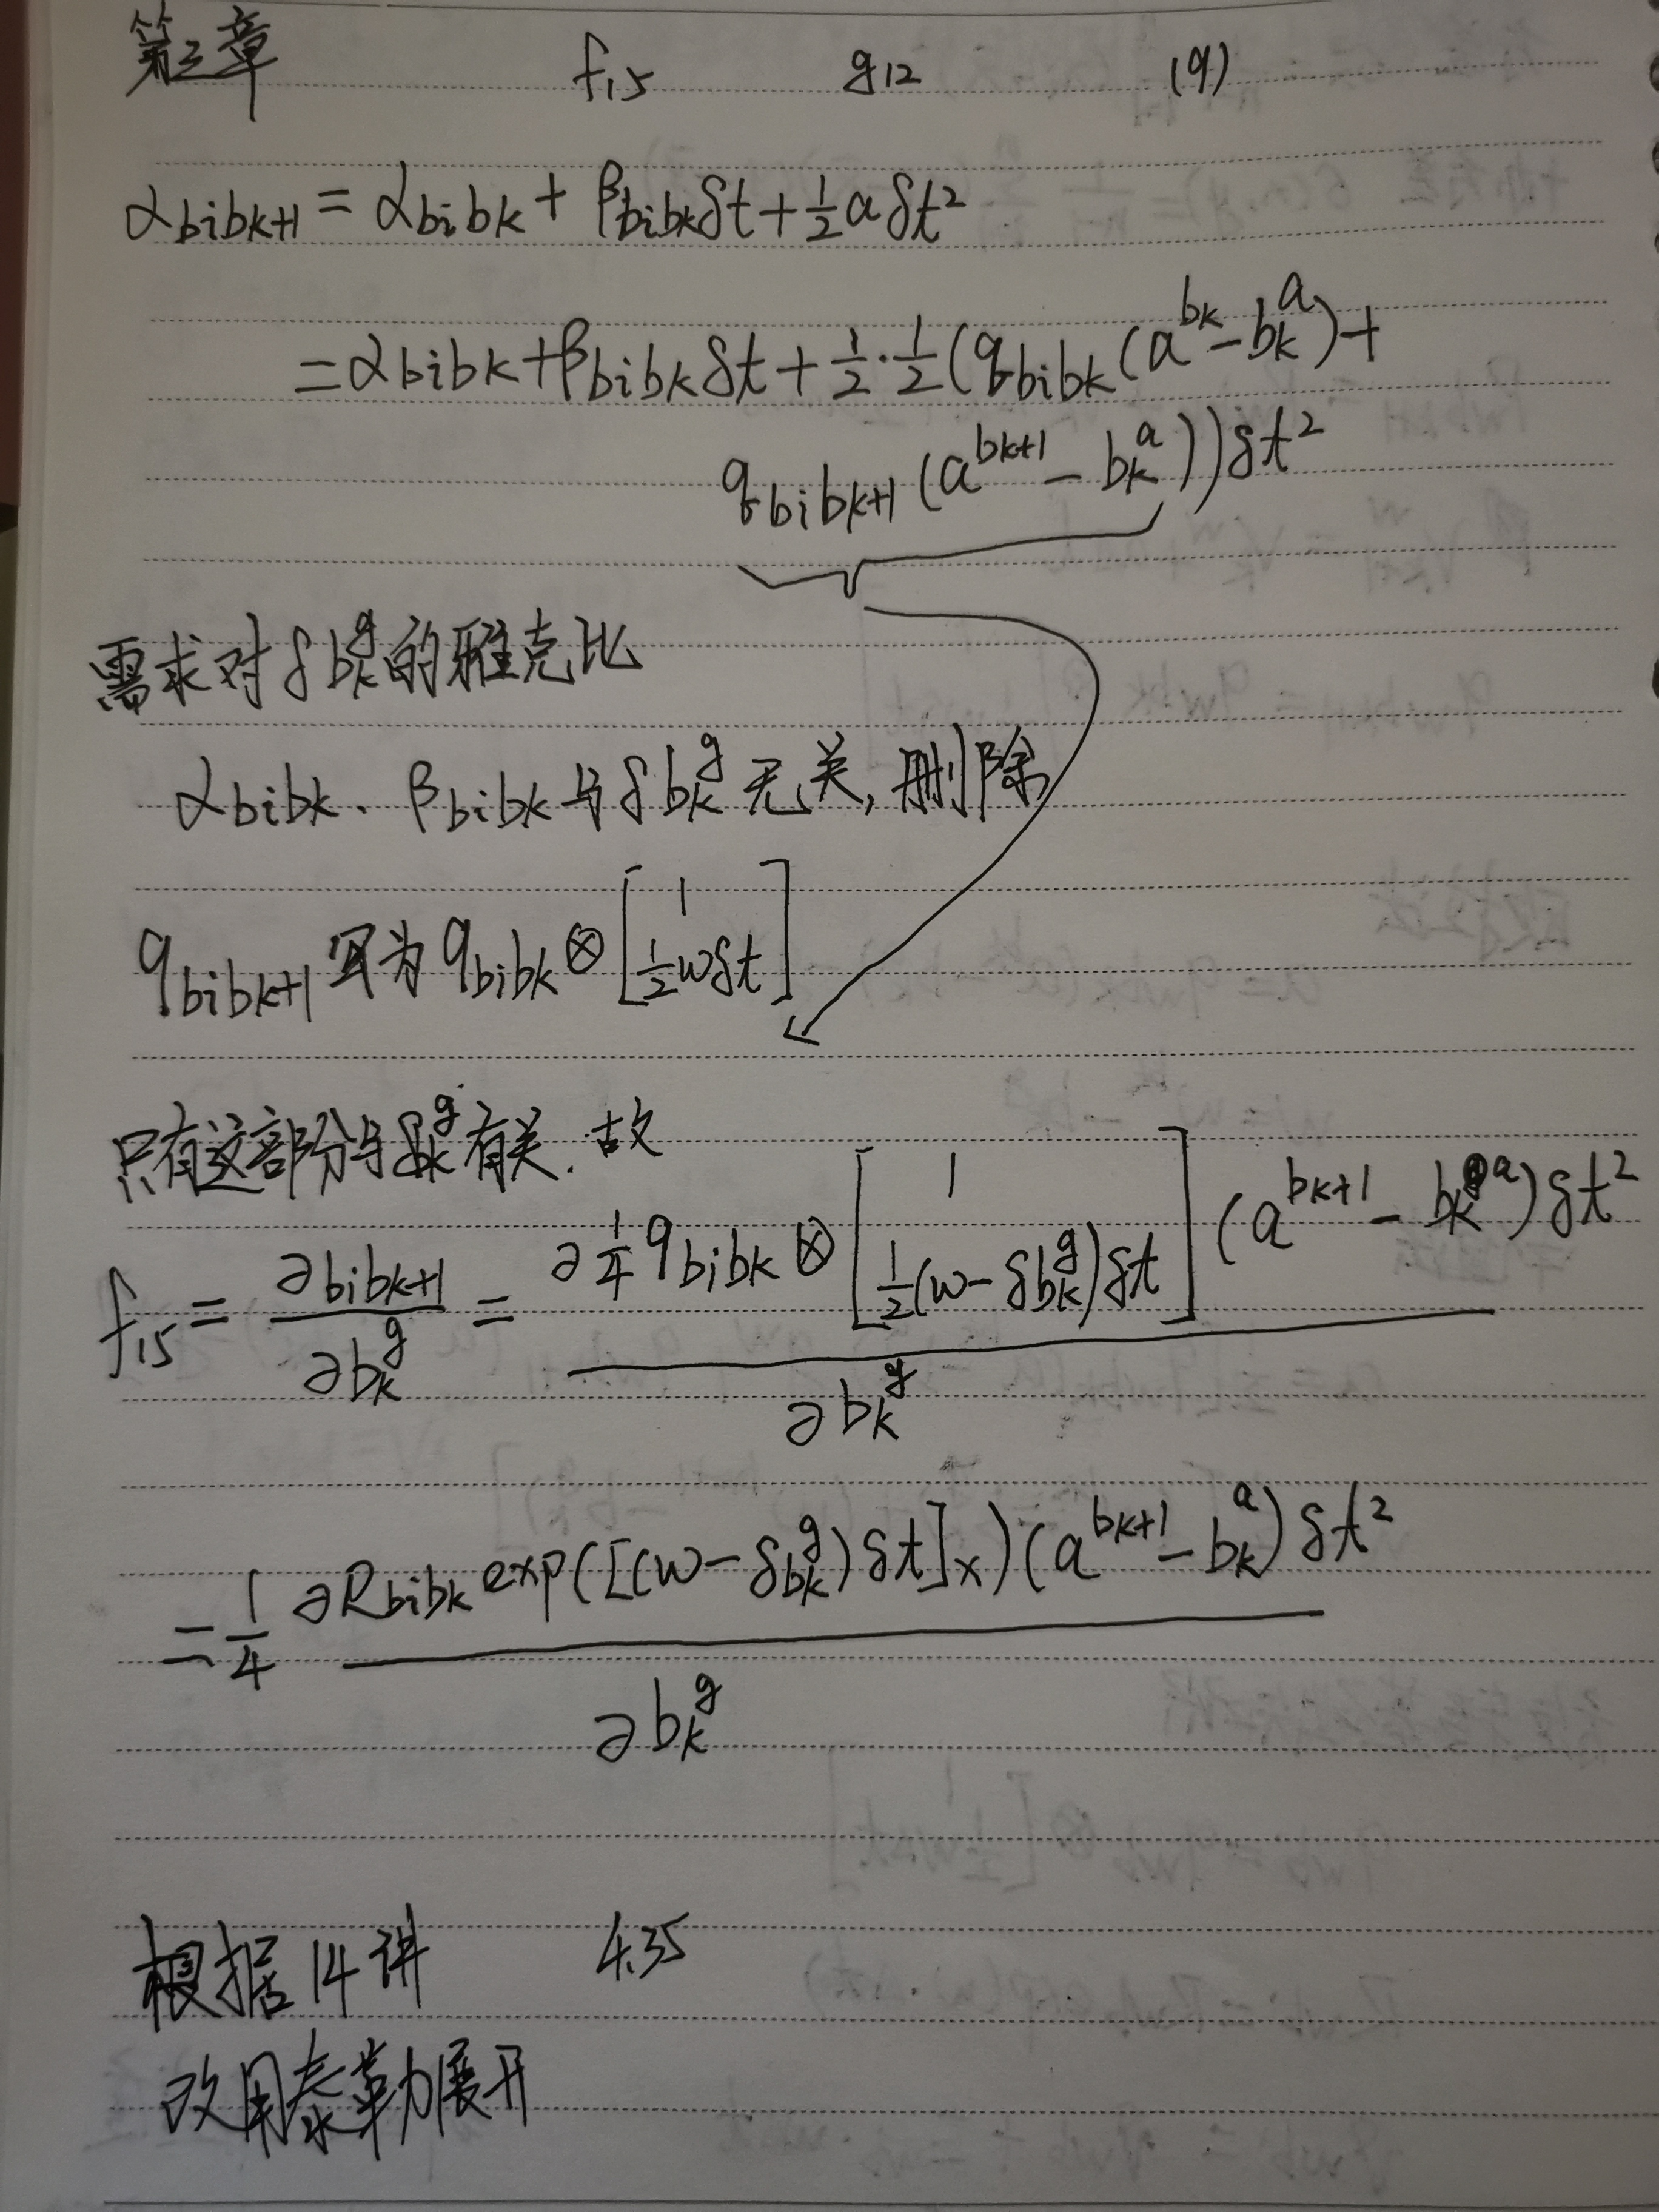 第三章 f₁₅ g₁₂ (9)
α_{bibk+1} = α_{bibk} + β_{bibk}δt + ½aδt²
= α_{bibk} + β_{bibk}δt + ½·½(q_{bibk}(a^{bk} - b_k^a) +
q_{bibk+1}(a^{bk+1} - b_k^a))δt²
需求对δb_k^g的雅克比
α_{bibk}、β_{bibk}与δb_k^g无关,删除
q_{bibk+1}写为q_{bibk}⊗[1 ½wδt]
只有这部分与δb_k^g有关.故
f₁₅ = ∂_{bibk+1}/∂b_k^g = ∂¼q_{bibk}⊗[1 ½(w-δb_k^g)δt](a^{bk+1} - b_k^a)δt²/∂b_k^g
= ¼ ∂R_{bibk}exp([(w-δb_k^g)δt]×)(a^{bk+1} - b_k^a)δt²/∂b_k^g
根据14讲 4.35
改用泰勒展开